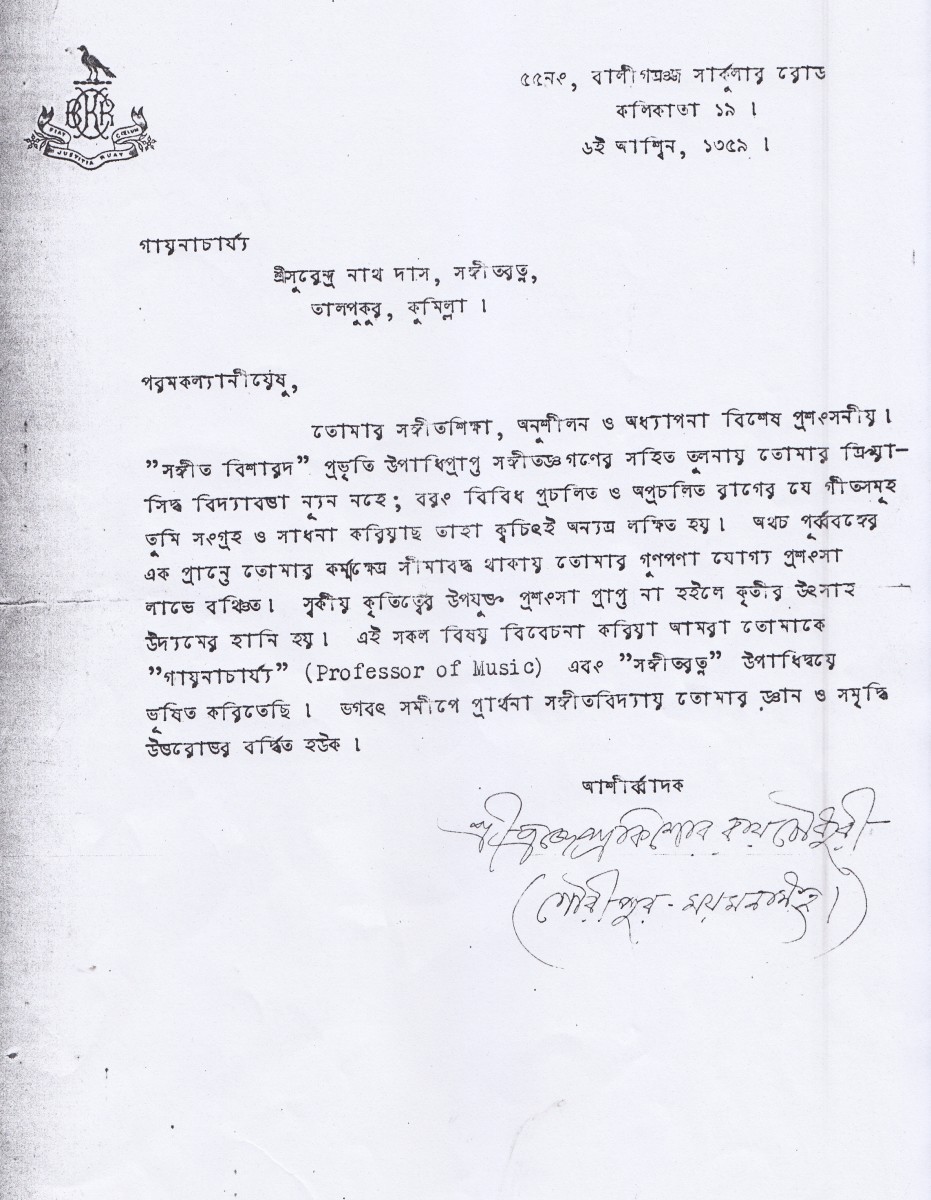 ৫৫নং, বালীগঞ্জ সার্কুলার রোড
কলিকাতা ১৯ ।
৬ই আশ্বিন, ১৩৫৯ ।
FIAT
JUSTITIA RUAT
CŒLUM
গায়নাচার্য্য
শ্রীসুরেন্দ্র নাথ দাস, সঙ্গীতরত্ন,
তালপুকুর, কুমিল্লা ।
পরমকল্যানীয়েষু,
তোমার সঙ্গীতশিক্ষা, অনুশীলন ও অধ্যাপনা বিশেষ প্রশংসনীয় ।
"সঙ্গীত বিশারদ" প্রভৃতি উপাধিপ্রাপ্ত সঙ্গীতজ্ঞগণের সহিত তুলনায় তোমার ক্রিয়া-
সিদ্ধ বিদ্যাবত্তা ন্যূন নহে ; বরং বিবিধ প্রচলিত ও অপ্রচলিত রাগের যে গীতসমূহ
তুমি সংগ্রহ ও সাধনা করিয়াছ তাহা ক্বচিৎই অন্যত্র লক্ষিত হয় । অথচ পূর্ব্ববঙ্গের
এক প্রান্তে তোমার কর্মক্ষেত্র সীমাবদ্ধ থাকায় তোমার গুণপণা যোগ্য প্রশংসা
লাভে বঞ্চিত । স্বকীয় কৃতিত্বের উপযুক্ত প্রশংসা প্রাপ্ত না হইলে কৃতীর উৎসাহ
উদ্যমের হানি হয় । এই সকল বিষয় বিবেচনা করিয়া আমরা তোমাকে
"গায়নাচার্য্য" (Professor of Music) এবং "সঙ্গীতরত্ন" উপাধিদ্বয়ে
ভূষিত করিতেছি । ভগবৎ সমীপে প্রার্থনা সঙ্গীতবিদ্যায় তোমার জ্ঞান ও সমৃদ্ধি
উত্তরোত্তর বর্দ্ধিত হউক ।
আশীর্ব্বাদক
শ্রীব্রজেন্দ্রকিশোর রায়চৌধুরী
(গৌরীপুর - ময়মনসিংহ ।)